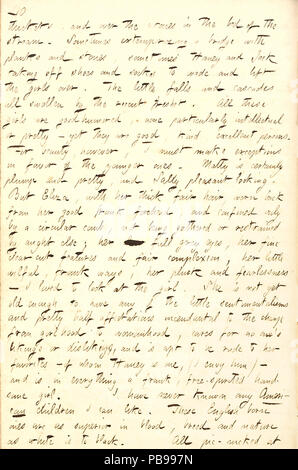 10
thickets, and over the stones in the bed of the
stream. Sometimes extemporizing a bridge with
planks and stones, sometimes Haney and Jack
taking off shoes and socks to wade and lift
the girls over. The little falls and cascades
all swollen by the recent freshet. All these
girls are good humored, none particularly intellectual
or pretty – yet they are good kind excellent persons.
For vanity however I must make exceptions
in favor of the younger ones. Matty is certainly
plump and pretty, and Sally pleasant looking.
But Eliza, with her thick fair hair worn back
from her good frank forehead, and confined only
by a circular comb, not being gathered or restrained
by aught else; her full grey eyes, her fine
clear cut features and fair complexion, her little
wilful, frank ways, her pluck and fearlessness
– I lived to look at the girl. She is not yet
old enough to have any of the little sentimentalisms
and pretty half affectations incidental to the change
from girlhood to womanhood cares for no one's
likings or dislikings, and is apt to be rude to her
favorites – of whom Haney is one, (I envy him) –
and is in everything a frank, free-spirited hand-
some girl. I have never known any Ameri-
can children I can like. These English born
ones are as superior in blood, breed and nature
as white is to black. All pic-nicked at
alamy
Image ID: PB997N
www.alamy.com